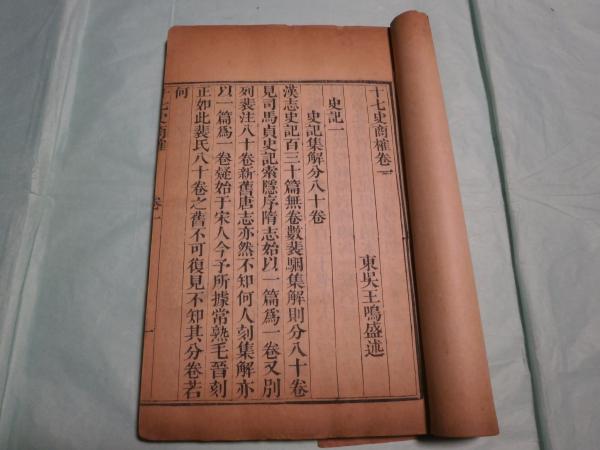 十七史商榷卷一
東吳王鳴盛述
史記一
史記集解分八十卷
漢志史記百三十篇無卷數裴駰集解則分八十卷
見司馬貞史記索隱序隋志始以一篇爲一卷又別
列裴注八十卷新舊唐志亦然不知何人刻集解亦
以一篇爲一卷疑始于宋人今予所據常熟毛晉刻
正如此裴氏八十卷之舊不可復見不知其分卷若
何
十七史商榷
卷一
一